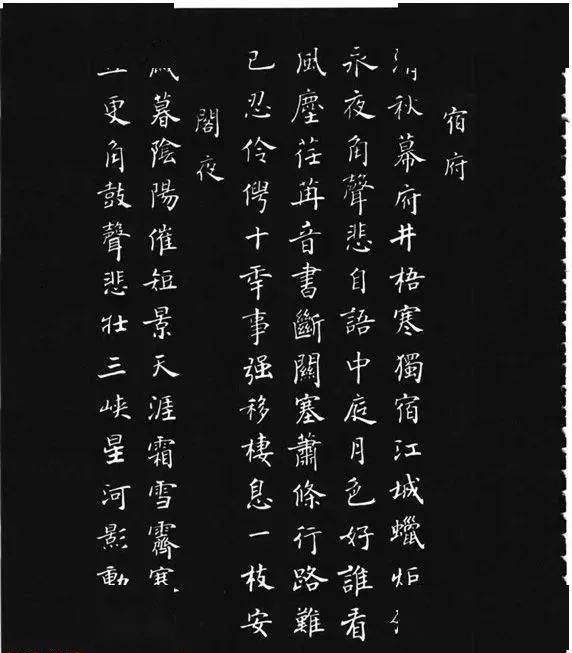 宿府
清秋幕府井梧寒獨宿江城蠟炬
永夜角聲悲自語中庭月色好誰看
風塵荏苒音書斷關塞蕭條行路難
已忍伶俜十年事强移棲息一枝安
閣夜
歲暮陰陽催短景天涯霜雪霽寒
五更角鼓聲悲壯三峽星河影動